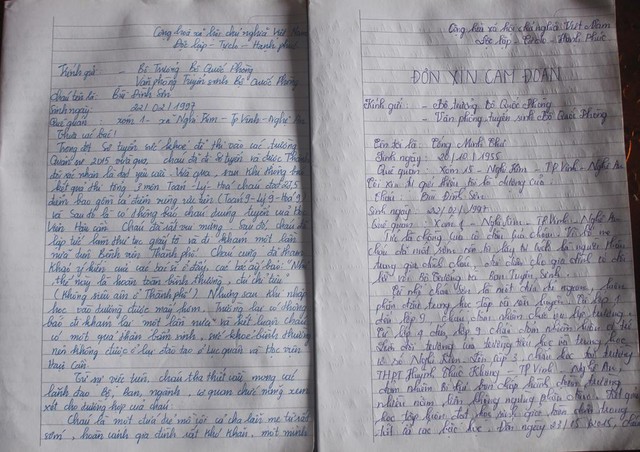 Cộng hoà xã hội chủ nghĩa Việt Nam
Độc lập - Tự do - Hạnh phúc
Kính gửi: - Bộ Trưởng Bộ Quốc Phòng
Văn phòng Tuyển sinh Bộ Quốc Phòng
Cháu tên là: Bùi Đình Sơn
Sinh ngày: 22/02/1997
Quê quán: xóm 1 - xã Nghi Kim - Tp Vinh - Nghệ An
Thưa các bác!
Trong đợt Sơ tuyển sức khoẻ để thi vào các trường
Quân sự 2015 vừa qua, cháu đã đi sơ tuyển và được
đội xác nhận là đạt yêu cầu. Vừa qua, sau khi thông báo
kết quả thi tổng 3 môn Toán - Lý - Hoá cháu đạt
điểm bao gồm cả điểm vùng ưu tiên (Toán 9 - Lý 9 - Hoá 9)
và sau đó là có thông báo cháu trúng tuyển vào Học
Viện Hậu Cần. Cháu đã rất vui mừng. Sau đó, cháu đã
lập tức làm thủ tục giấy tờ và đi khám một lần
nữa dưới Bệnh viện Thành phố. Cháu cũng đã tham
khảo ý kiến của các bác sĩ ở đây, các bác ấy bảo: "Như
thế này là hoàn toàn bình thường,
(Không siêu âm ở Thành phố). Nhưng sau khi nhập
học vào trường được mấy hôm. Trường lại có thông
báo đi khám lại một lần nữa và kết luận cháu
có một quả thận bẩm sinh, sức khoẻ bình thường
nên không được ở lại đào tạo ở lục quân và Học viện
Hậu Cần.
Từ sự việc trên, cháu tha thiết mong các
lãnh đạo Bộ, ban, ngành, cơ quan chức năng xem
xét cho trường hợp của cháu:
Cháu là một đứa trẻ mồ côi cả cha lẫn mẹ từ rất
sớm, hoàn cảnh gia đình rất khó khăn, một mình
Cộng hòa xã hội chủ nghĩa Việt Nam
Độc lập - Tự do - Hạnh Phúc
ĐƠN XIN CAM ĐOAN
Kính gửi: - Bộ trưởng Bộ Quốc Phòng
- Văn phòng tuyển sinh Bộ Quốc Phòng
Tôn tôi là: Công Minh Châu
Sinh ngày: 20/10/1955
Quê quán: Xóm 15 - Nghi Kim - TP Vinh - Nghệ An
Tôi xin đại diện là bố dượng của
Cháu: Bùi Đình Sơn
Sinh ngày: 22/02/1997
Quê quán: Xóm 1 - Nghi Kim - TP Vinh - Nghệ An
cháu đã mất sớm nên tôi lấy tư cách là người thân
trong gia đình cháu, đại diện cho gia đình
với Bộ Trưởng và Ban Tuyển Sinh.
Từ nhỏ cháu Sơn là một đứa trẻ ngoan, luôn
phấn đấu trong học tập và rèn luyện. Từ lớp 1
đến lớp 9, cháu đảm nhiệm chức vụ lớp trưởng.
Từ lớp 4 đến lớp 9 cháu đảm nhiệm
đội trưởng của trường tiểu học và trung học
cơ sở Nghi Kim. Lên cấp 3, cháu học tại trường
THPT Huỳnh Thúc Kháng - TP Vinh - Nghệ An,
đảm nhiệm Bí thư
nhiều năm liền không ngừng phấn đấu.
học tập luôn đạt học sinh
ngày 23/05/2015, cháu